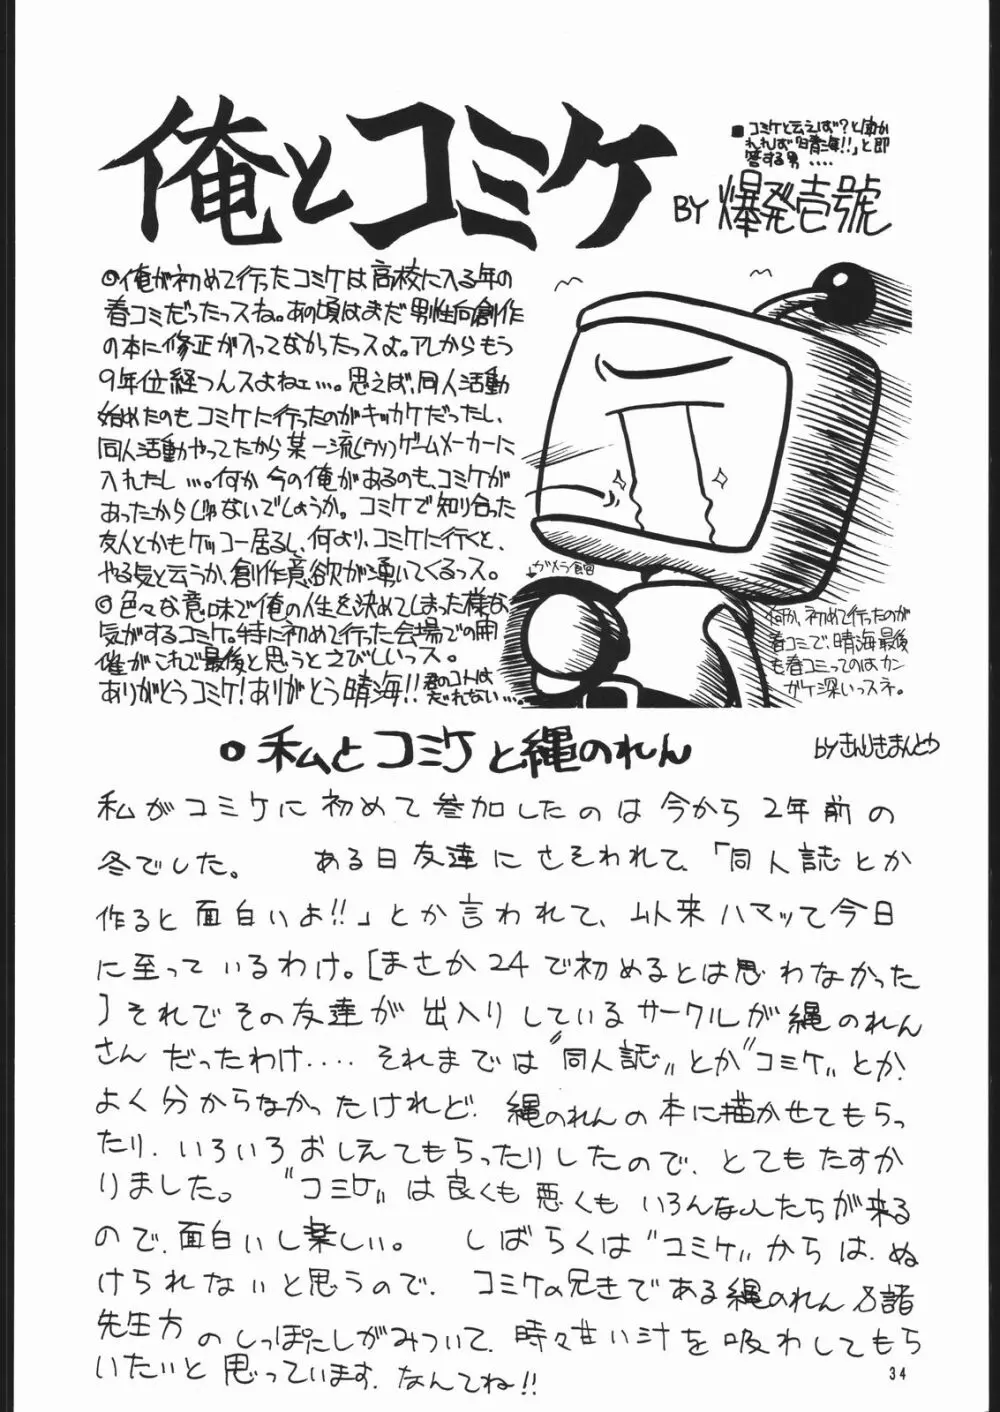 俺とコミケ
■コミケと云えば?と聞か
れれば「晴海!!」と即
答する男....
BY 爆発壱號
◎俺が初めて行ったコミケは高校に入る年の
春コミだったっスね。あの頃はまだ男性向創作
の本に修正が入ってなかったっスよ。アレからもう
9年位経つんスよねェ…。思えば、同人活動
始めたのもコミケに行ったのがキッカケだったし、
同人活動やってたから某一流(ウソ)ゲームメーカーに
入れたし…。何か今の俺があるのも、コミケが
あったからじゃないでしょうか。コミケで知り合った
友人とかもケッコー居るし、何より、コミケに行くと、
やる気と云うか、創作意欲が湧いてくるっス。
◎色々な意味で俺の人生を決めてしまった様な
気がするコミケ。特に初めて行った会場での開
催がこれで最後と思うとさびしいっス。
ありがとうコミケ!ありがとう晴海!!君のコトは
忘れない…。
↓ガメラ館
何か、初めて行ったのが
春コミで、晴海最後
も春コミってのはカン
ガケ深いっスネ。
○私とコミケと縄のれん
byきんじきまんとう
私がコミケに初めて参加したのは今から2年前の
冬でした。 ある日友達にさそわれて、「同人誌とか
作ると面白いよ!!」とか言われて、以来ハマッて今日
に至っているわけ。[まさか24で初めるとは思わなかった
]それでその友達が出入りしているサークルが縄のれん
さんだったわけ.... それまでは"同人誌"とか"コミケ"とか、
よく分からなかったけれど、縄のれんの本に描かせてもらっ
たり、いろいろおしえてもらったりしたので、とてもたすか
りました。 "コミケ"は良くも悪くもいろんな人たちが来る
ので、面白いし楽しい。 しばらくは"コミケ"からは、ぬ
けられないと思うので、コミケの兄きである縄のれん諸
先生方のしっぽにしがみついて、時々甘い汁を吸わしてもら
いたいと思っています、なんてね!!
34